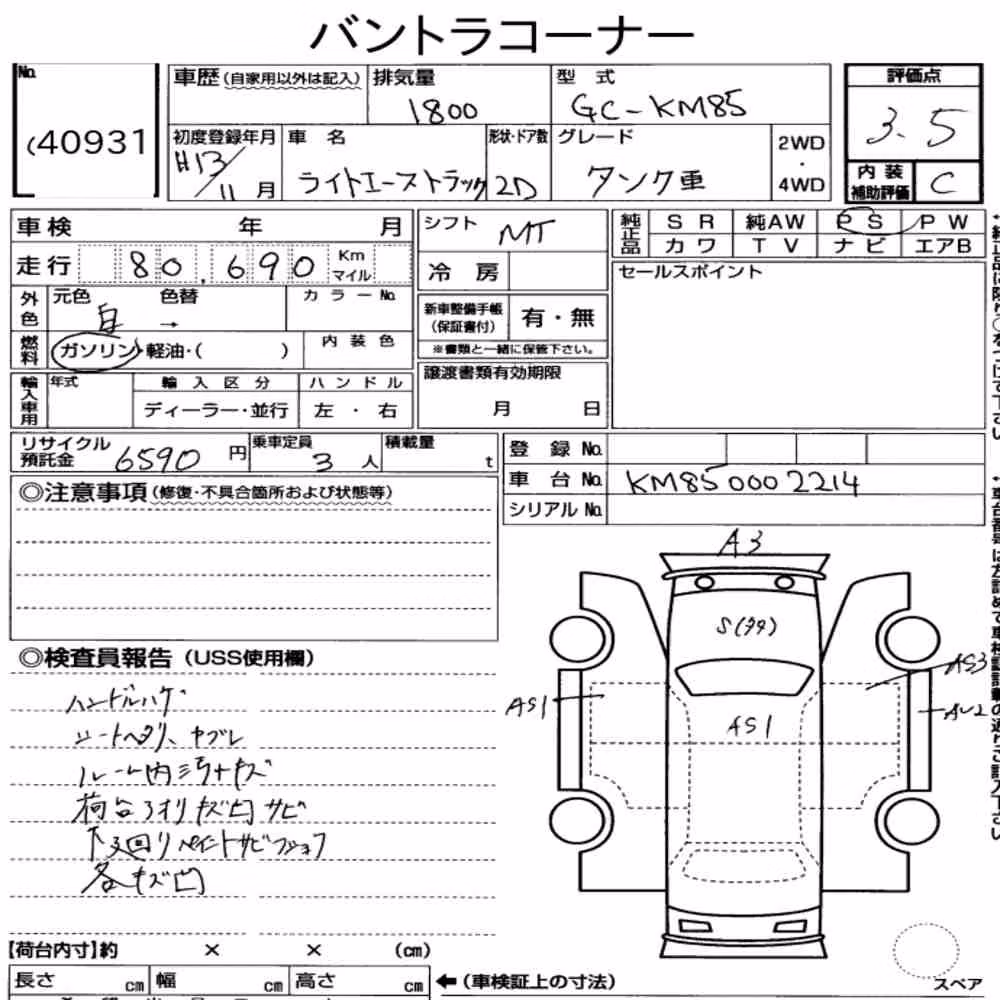 バントラコーナー
No.
(40931
車歴(自家用以外は記入)
排気量
1800
型 式
GC-KM85
評価点
3.5
初度登録年月
H13/11月
車 名
ライトエーストラック
形状・ドア数
2D
グレード
タンク車
2WD
・
4WD
内 装
補助評価
C
車検 年 月
走行 80,690 Km
マイル
シフト MT
冷 房
純正品
SR 純AW PS PW
カワ TV ナビ エアB
セールスポイント
外色
元色 色替
白 →
カラーNo.
新車整備手帳
(保証書付)
有・無
※書類と一緒に保管下さい。
燃料
ガソリン・軽油・( )
内装色
輸入車用
年式
輸入区分
ディーラー・並行
ハンドル
左・右
譲渡書類有効期限
月 日
リサイクル
預託金
6590円
乗車定員
3人
積載量
t
登 録 No.
車 台 No. KM85 000 2214
シリアル No.
◎注意事項(修復・不具合箇所および状態等)
◎検査員報告(USS使用欄)
ハンドルハゲ
シートヘタリ、ヤブレ
ルーム内汚キズ
荷台アオリキズ凹サビ
下回りペイントサビフショク
各キズ凹
A3
S(タタ)
AS1
AS1
AS3
AU2
【荷台内寸】約 × × (cm)
長さ cm 幅 cm 高さ cm
←(車検証上の寸法)
スペア